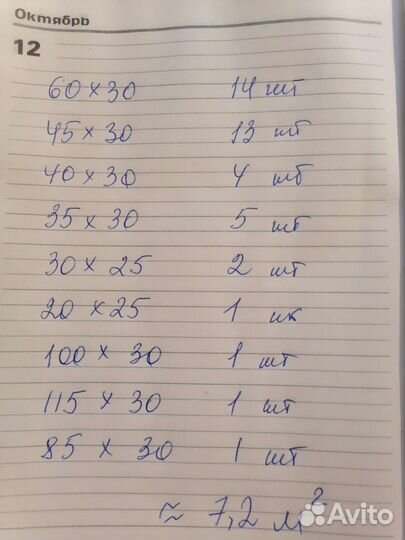 Октябрь
12
60 x 30 14 шт
45 x 30 13 шт
40 x 30 4 шт
35 x 30 5 шт
30 x 25 2 шт
20 x 25 1 шк
100 x 30 1 шт
115 x 30 1 шт
85 x 30 1 шт
≈ 7,2 м²
Avito